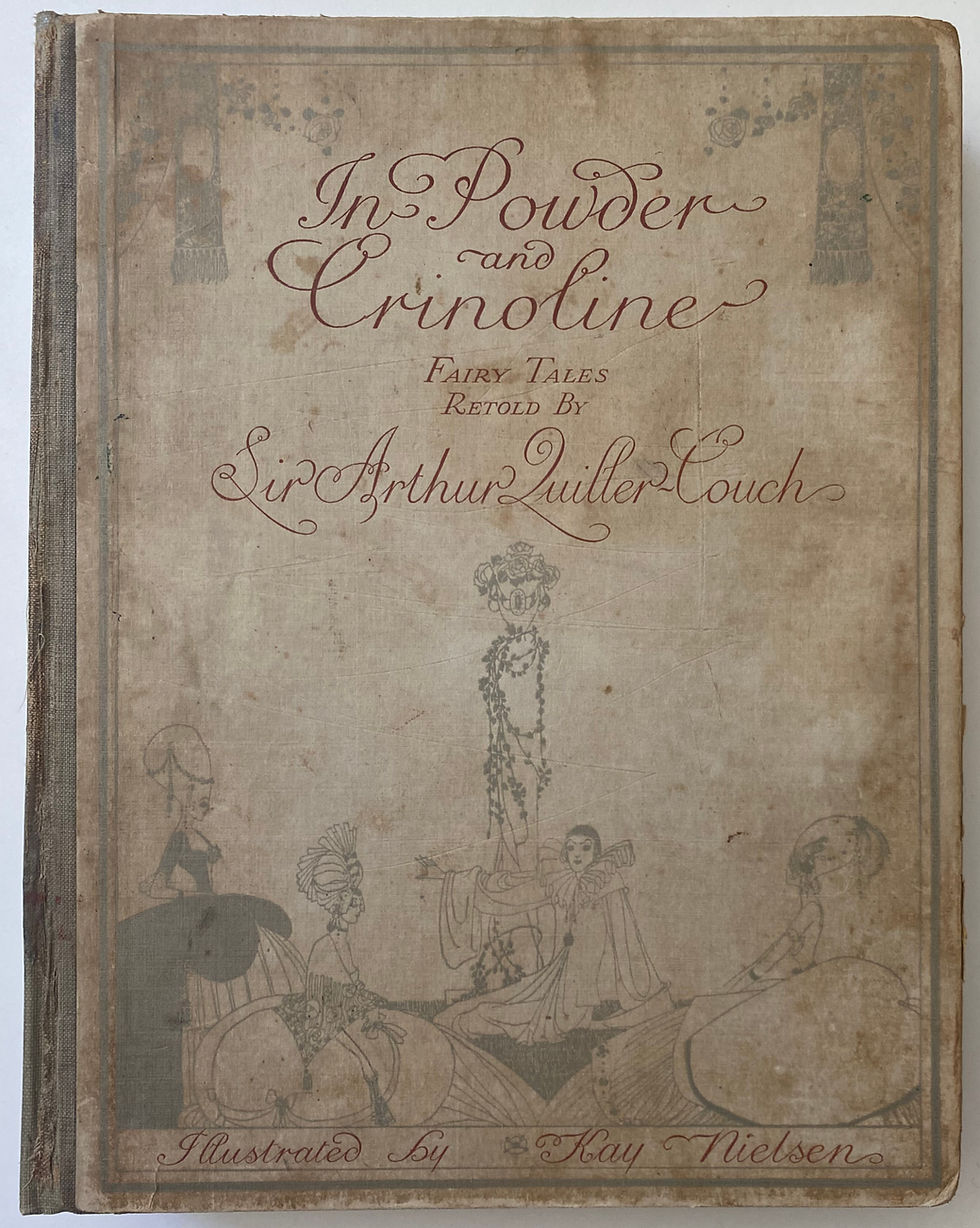 In Powder
and
Crinoline
Fairy Tales
Retold By
Sir Arthur Quiller-Couch
Illustrated by Kay Nielsen